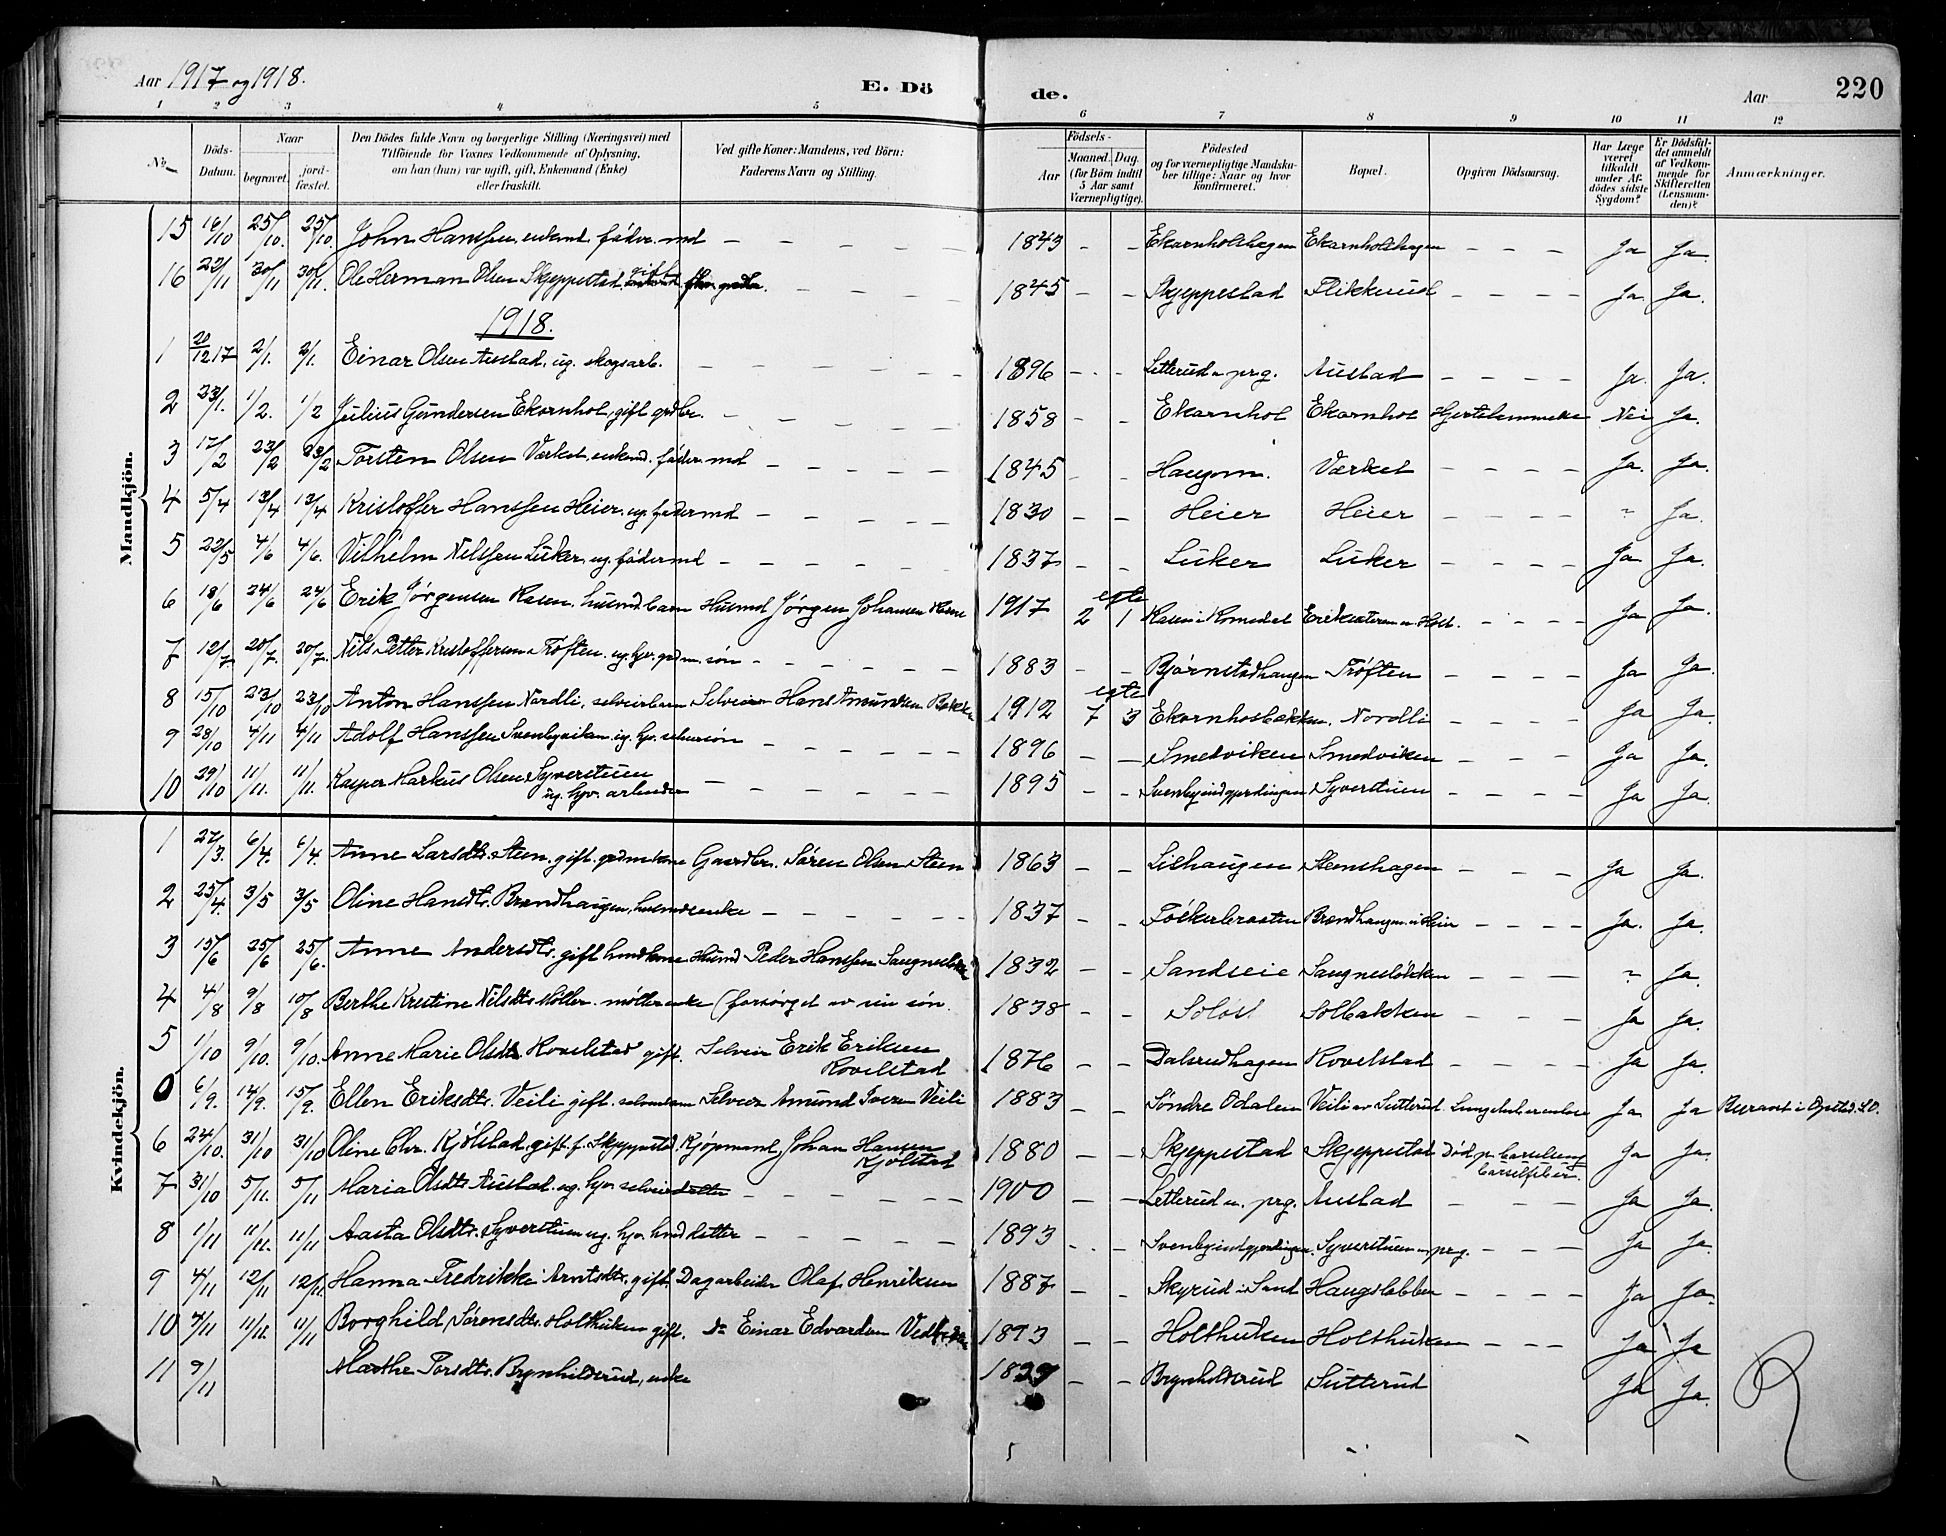 Aar 1917 og 1918. E. Dö de. Aar 220
1 2 3 4 5 6 7 8 9 10 11 12
No. Döds-Datum. Naar begravet. jord-fæstet. Den Dödes fulde Navn og borgerlige Stilling (Næringsvei) med Tilföiende for Voxnes Vedkommende af Oplysning, om han (hun) var ugift, gift, Enkemand (Enke) eller fraskilt. Ved gifte Koner: Mandens, ved Börn: Faderens Navn og Stilling. Födsels- Aar Maaned. Dag. (for Börn indtil 5 Aar samt Værnepligtige). Födested og for værnepligtige Mandskaber tillige: Naar og hvor konfirmeret. Bopæl. Opgiven Dödsaarsag. Har Læge været tilkaldt under Afdödes sidste Sygdom? Er Dödsfaldet anmeldt af Vedkommende for Skifteretten (Lensmanden)? Anmærkninger.
Mandkjön.
15 16/10 25/10. 25/10. John Hanssen, enkemd. föder. md – – – – – 1843 – – Ekornholshagen Ekornholshagen – – – – Ja Ja.
16 22/11 30/11 30/11. Ole Herman Olsen Skjeppestad, gift – – – – 1845 – – Skjeppestad Flikkerud – – – – Ja. Ja.
1918.
1 20/12 17 2/1. 2/1. Einar Olsen Austad, ug. skogsarb. – – – – – – 1896 – – – Letterud u. prg. Austad – – – – Ja. Ja.
2 23/1. 1/2. 1/2 Julius Gundersen Ekornhol, gift grdbr. – – – – – 1858 – – Ekornhol Ekornhol Hjertelammelse Nei Ja.
3 17/2 23/2 23/2 Torsten Olsen Værket, enkemd. föder. md – – – – – 1845 – – Haugom. Værket – – – – Ja. Ja.
4 5/4 13/4 13/4 Kristoffer Hanssen Heier, ug. födermd – – – – – 1830 – – Heier Heier – – – – " Ja.
5 22/5 4/6 4/6. Vilhelm Nilssen Luker, ug. födermd – – – – – – 1837 – – Luker Luker – – – – Ja Ja.
6 18/6 24/6 24/6 Erik Jörgensen Rasen, husmd. barn Husmd Jörgen Johansen Rasen 1917 egte 2 1 Rasen i Romedal Erikssæteren u. Hol. – – – – Ja Ja.
7 12/7. 20/7. 20/7. Nils Petter Kristoffersen Tröften. ug. hjv. grdm. sön – – – – – 1883 – – Bjørnstadhaugen Tröften – – – – Ja Ja.
8 15/10 23/10 23/10 Anton Hanssen Nordli, selveierbarn Selveier Hans Amundsen Bakken 1912 egte 7 3 Ekornholsbakken, Nordli – – – – Ja Ja.
9 28/10 4/11 4/11 Adolf Hanssen ug. hjv. selveiersön – – – – – 1896 – – Smedviken Smedviken – – – – Ja Ja.
10 29/10 11/11. 11/11. Kasper Markus Olsen Syverstuen – – – – – – 1895 – – Svenbyindgjerdingen Syverstuen – – – – Ja Ja.
ug. hjv. arbeider
Kvindekjön.
1 27/3. 6/4. 6/4. Anne Larsdtr. Steen, gift. grdmkone Gaardbr. Sören Olsen Steen 1863 – – Lilhaugen Stenshagen – – – – Ja Ja.
2 25/4. 3/5 3/5 Oline Hansdtr. Brændhaugen, husmdsenke – – – – – – 1837 – – Brændhaugen u. Heier – – – – Ja. Ja.
3 15/6 25/6 25/6. Anne Andersdtr. gift husmdkone Husmd Peder Hanssen Saugnesløkken 1832 – – Sandseie Saugnesløkken – – – " Ja.
4 4/8 9/8 10/8 Berthe Kristine Nilsdtr. Moller. møllerenke (forsörget av sin sön. 1838 – – Solost Solbakken – – – – Ja Ja.
5 1/10 9/10. 9/10. Anne Marie Olsdtr. Rovelstad gift. Selveier Erik Eriksen 1876 – – Dalsrudhagen Rovelstad – – – – Ja Ja.
Rovelstad
0 6/9. 14/9. 15/9. Ellen Eriksdtr. Veili gift. Selveier Amund Iversen Veili 1883 – – Søndre Odalen Veili av Sutterud Lungetuberculose Ja Ja Begravet i Opstad. S.O.
6 24/10. 31/10 31/10 Oline Chr. Kjølstad, gift. f. Skjeppestad, Kjøpmand, Johan Hansen 1880 – – Skjeppestad Skjeppestad Död p. barselseng Ja Ja.
Kjölstad barselfeber.
7 31/10 5/11. 5/11 Maria Olsdtr Austad. ug. hjv. selveierdatter – – – – – 1900 – – Letterud u. prg. Austad – – – Ja Ja.
8 1/11 11/11. 11/11 Aasta Olsdtr. Syverstuen ug. hjv. husmd datter – – – – – 1893 – – – Svenbyindgjerdingen. Syverstuen u. prg. – – – Ja Ja.
9 4/11 12/11 12/11. Hanna Fredrikke Arntsdtr, gift, Dagarbeider Olaf Henriksen 1887 – – Skyrud i Sand Haugslabben – – – – Ja Ja.
10 7/11 11/11. 11/11 Borghild Sörensdtr. Holthuken gift. Do Einar Edvardsen 1893 – – Holthuken Holthuken – – – Ja Ja
11 9/11 Marthe Torsdtr. Brynhilderud, enke 1839 – – Brynhilderud Sutterud Ja Ja.